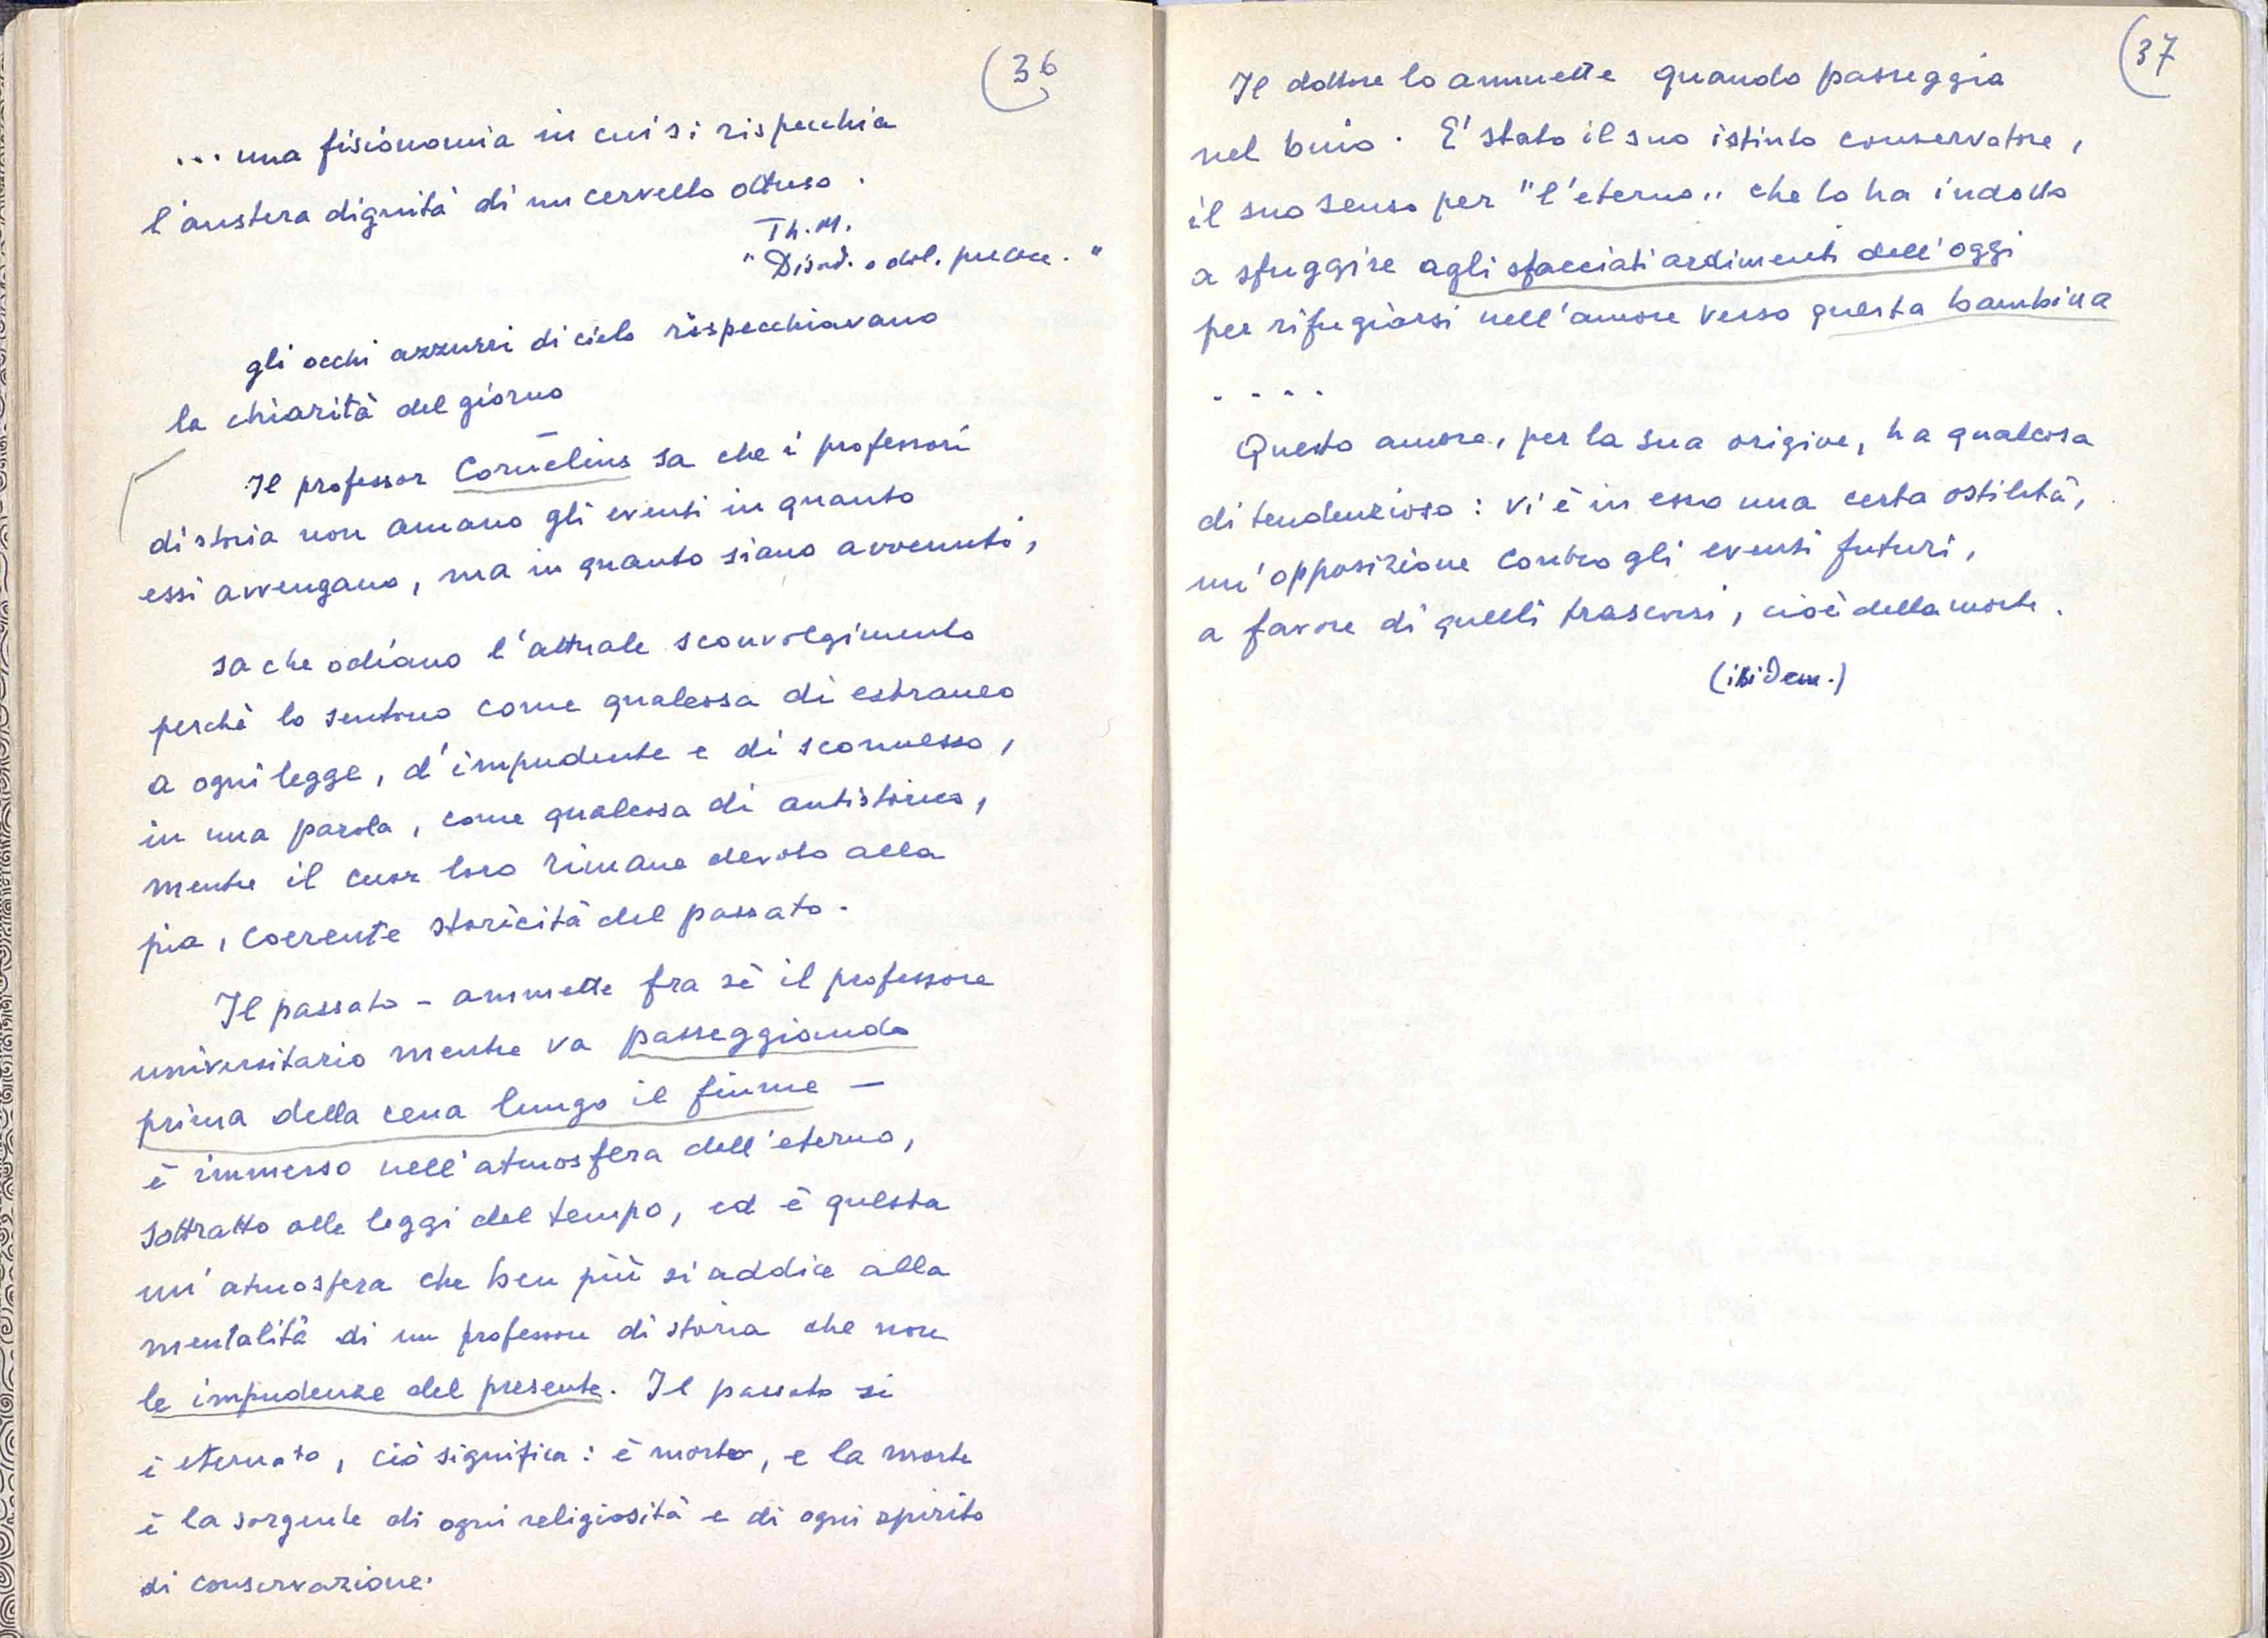 36
... una fisionomia in cui si rispecchia
l'austera dignità di un cervello ottuso.
Th. M.
"Disord. e dol. precoce."
gli occhi azzurri di cielo rispecchiavano
la chiarità del giorno
—
Il professor Cornelius sa che i professori
di storia non amano gli eventi in quanto
essi avvengano, ma in quanto siano avvenuti,
sa che odiano l'attuale sconvolgimento
perchè lo sentono come qualcosa di estraneo
a ogni legge, d'impudente e di sconnesso,
in una parola, come qualcosa di antistorico,
mentre il cuor loro rimane devoto alla
pia, coerente storicità del passato.
Il passato - ammette fra sè il professore
universitario mentre va passeggiando
prima della cena lungo il fiume —
è immerso nell'atmosfera dell'eterno,
sottratto alle leggi del tempo, ed è questa
un'atmosfera che ben più si addice alla
mentalità di un professore di storia che non
le impudenze del presente. Il passato si
è eternato, ciò significa: è morto, e la morte
è la sorgente di ogni religiosità e di ogni spirito
di conservazione.
37
Il dottore lo ammette quando passeggia
nel buio. E' stato il suo istinto conservatore,
il suo senso per "l'eterno" che lo ha indotto
a sfuggire agli sfacciati ardimenti dell'oggi
per rifugiarsi nell'amore verso questa bambina
. . . .
Questo amore, per la sua origine, ha qualcosa
di tendenzioso: vi è in esso una certa ostilità,
un'opposizione contro gli eventi futuri,
a favore di quelli trascorsi, cioè della morte.
(ibidem.)